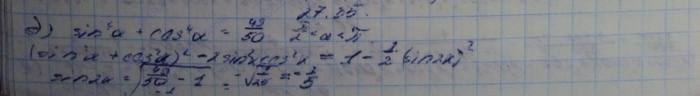 27.25.
д) sin⁴α + cos⁴α = 49/50   π/2 < α < π
(sin²α + cos²α)² - 2sin²α cos²α = 1 - 1/2 (sin2α)²
sin2α = = -1/5